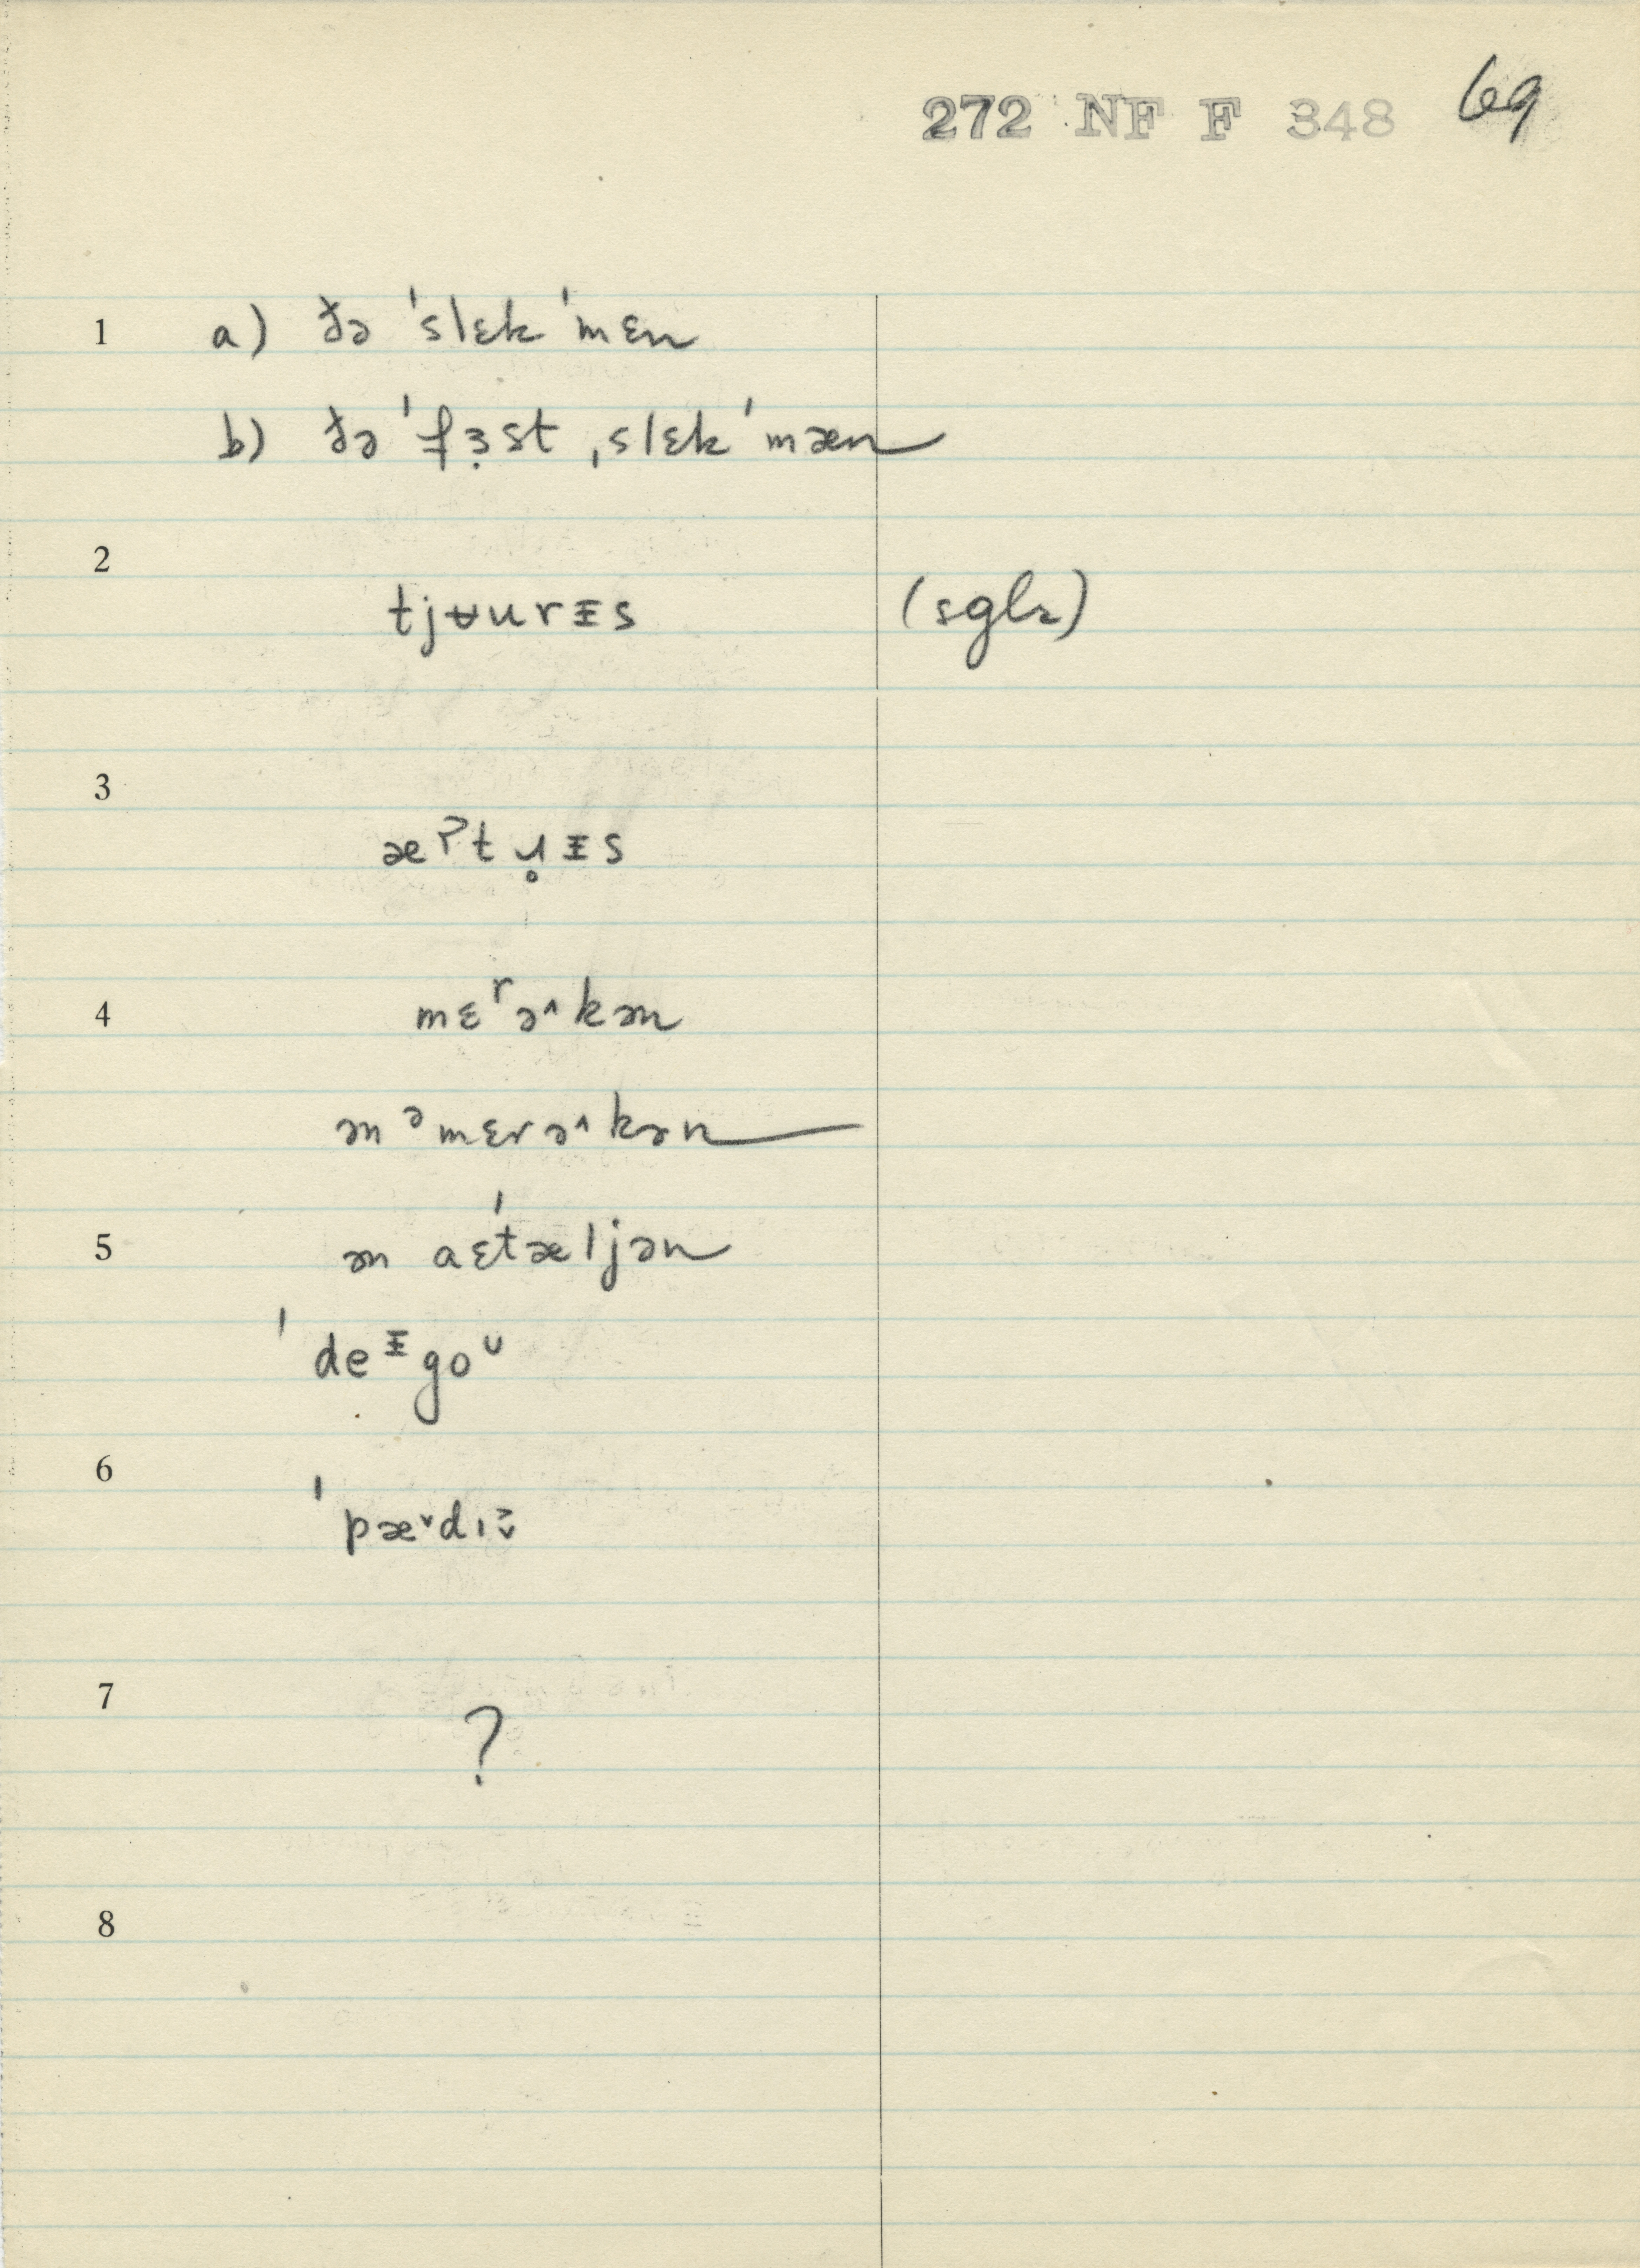 272 NF F 348 69
1 a) ðə 'slɛk 'mɛn
b) ðə 'fɜ̣st ˌslɛk 'mæn
2
tjʉurɪ̵s (sglr)
3
æˀtɥ̥ɪ̵s
4 mɛʳə^kən
ən ᵊmɛrə^kən
5 ən aɛ'tæljən
'deᶧgoᵁ
6
'pæˇdɪ
7
?
8